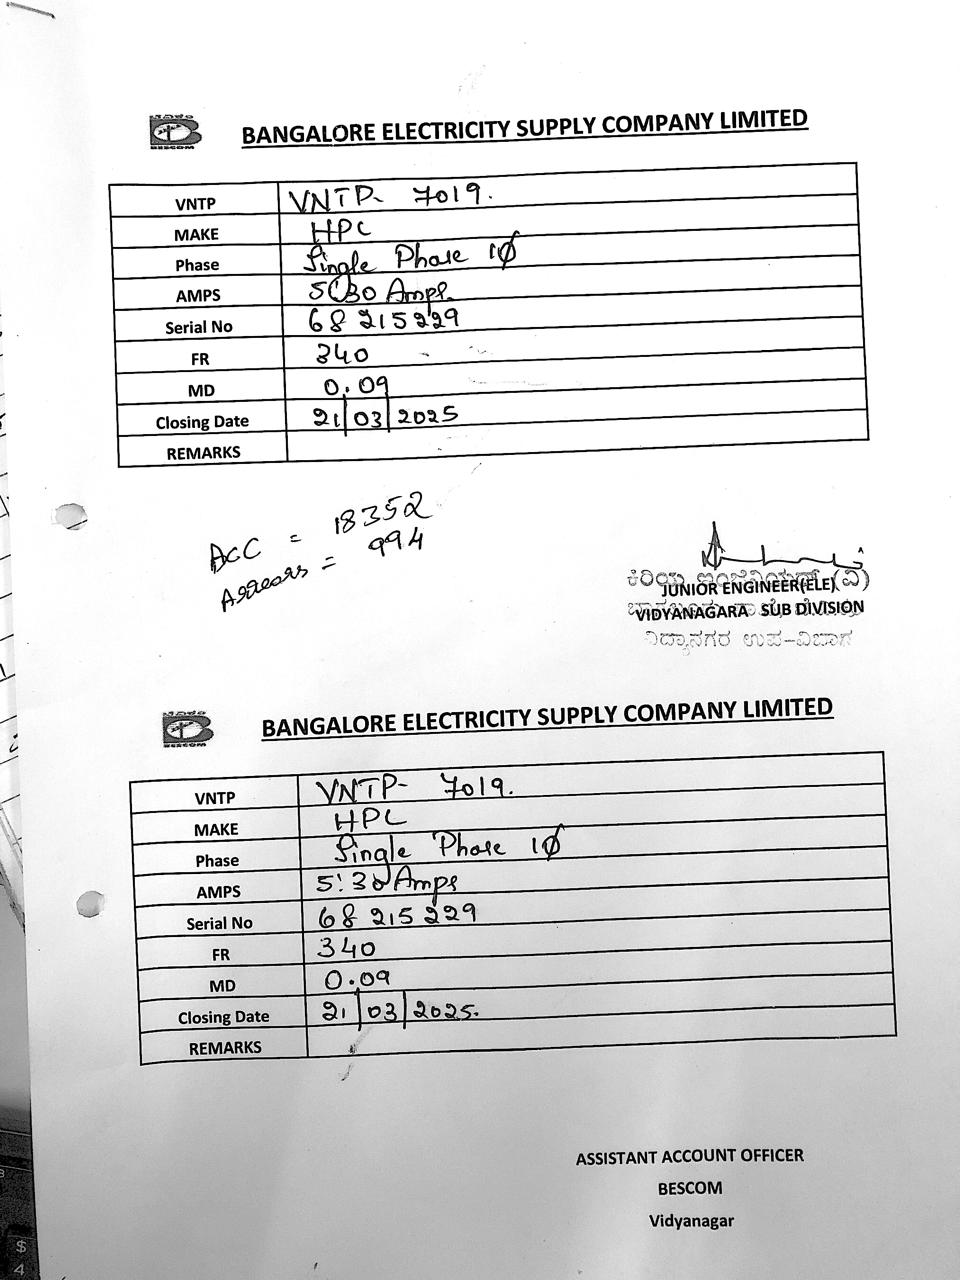 ಬೆವಿಕಂ
BESCOM
BANGALORE ELECTRICITY SUPPLY COMPANY LIMITED
VNTP VNTP- 7019.
MAKE HPC
Phase Single Phase 1Ø
AMPS 5-30 Amps.
Serial No 68215229
FR 340
MD 0.09
Closing Date 21/03/2025
REMARKS
ACC = 18352
Arrears = 994
ಕಿರಿಯ ಇಂಜಿನಿಯರ್ (ವಿ)
JUNIOR ENGINEER(ELE)
VIDYANAGARA SUB DIVISION
ವಿದ್ಯಾನಗರ ಉಪ-ವಿಭಾಗ
BESCOM
BANGALORE ELECTRICITY SUPPLY COMPANY LIMITED
VNTP VNTP- 7019.
MAKE HPL
Phase Single Phase 1Ø
AMPS 5-30 Amps
Serial No 68215229
FR 340
MD 0.09
Closing Date 21/03/2025.
REMARKS
ASSISTANT ACCOUNT OFFICER
BESCOM
Vidyanagar
$
4